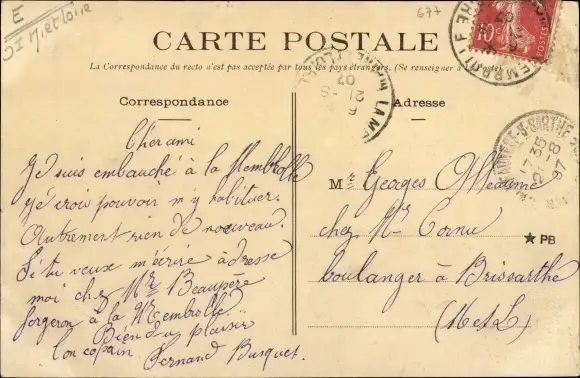 677
CARTE POSTALE
La Correspondance du recto n'est pas acceptée par tous les pays étrangers. (Se renseigner à la Poste).
Correspondance
Adresse
Cher ami
Je suis embauché à la Membrolle
Jé crois pouvoir m'y habituer.
Autrement rien de nouveau.
Si tu veux m'écrire adresse
moi chez Mr Beaupère
forgeron à la Membrolle
Bien du plaisir
ton copain Fernand Busquet.
Mr Georges
chez Mr Cornu
boulanger à Brissarthe
(M et L)
★ PB
10
POSTES